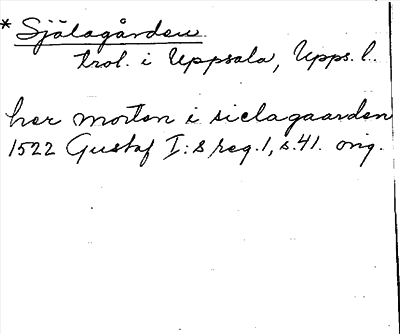 * Själagården
trol. i Uppsala, Upps. l.
her morten i sielagaarden
1522 Gustaf I:s reg. 1, s. 41. orig.